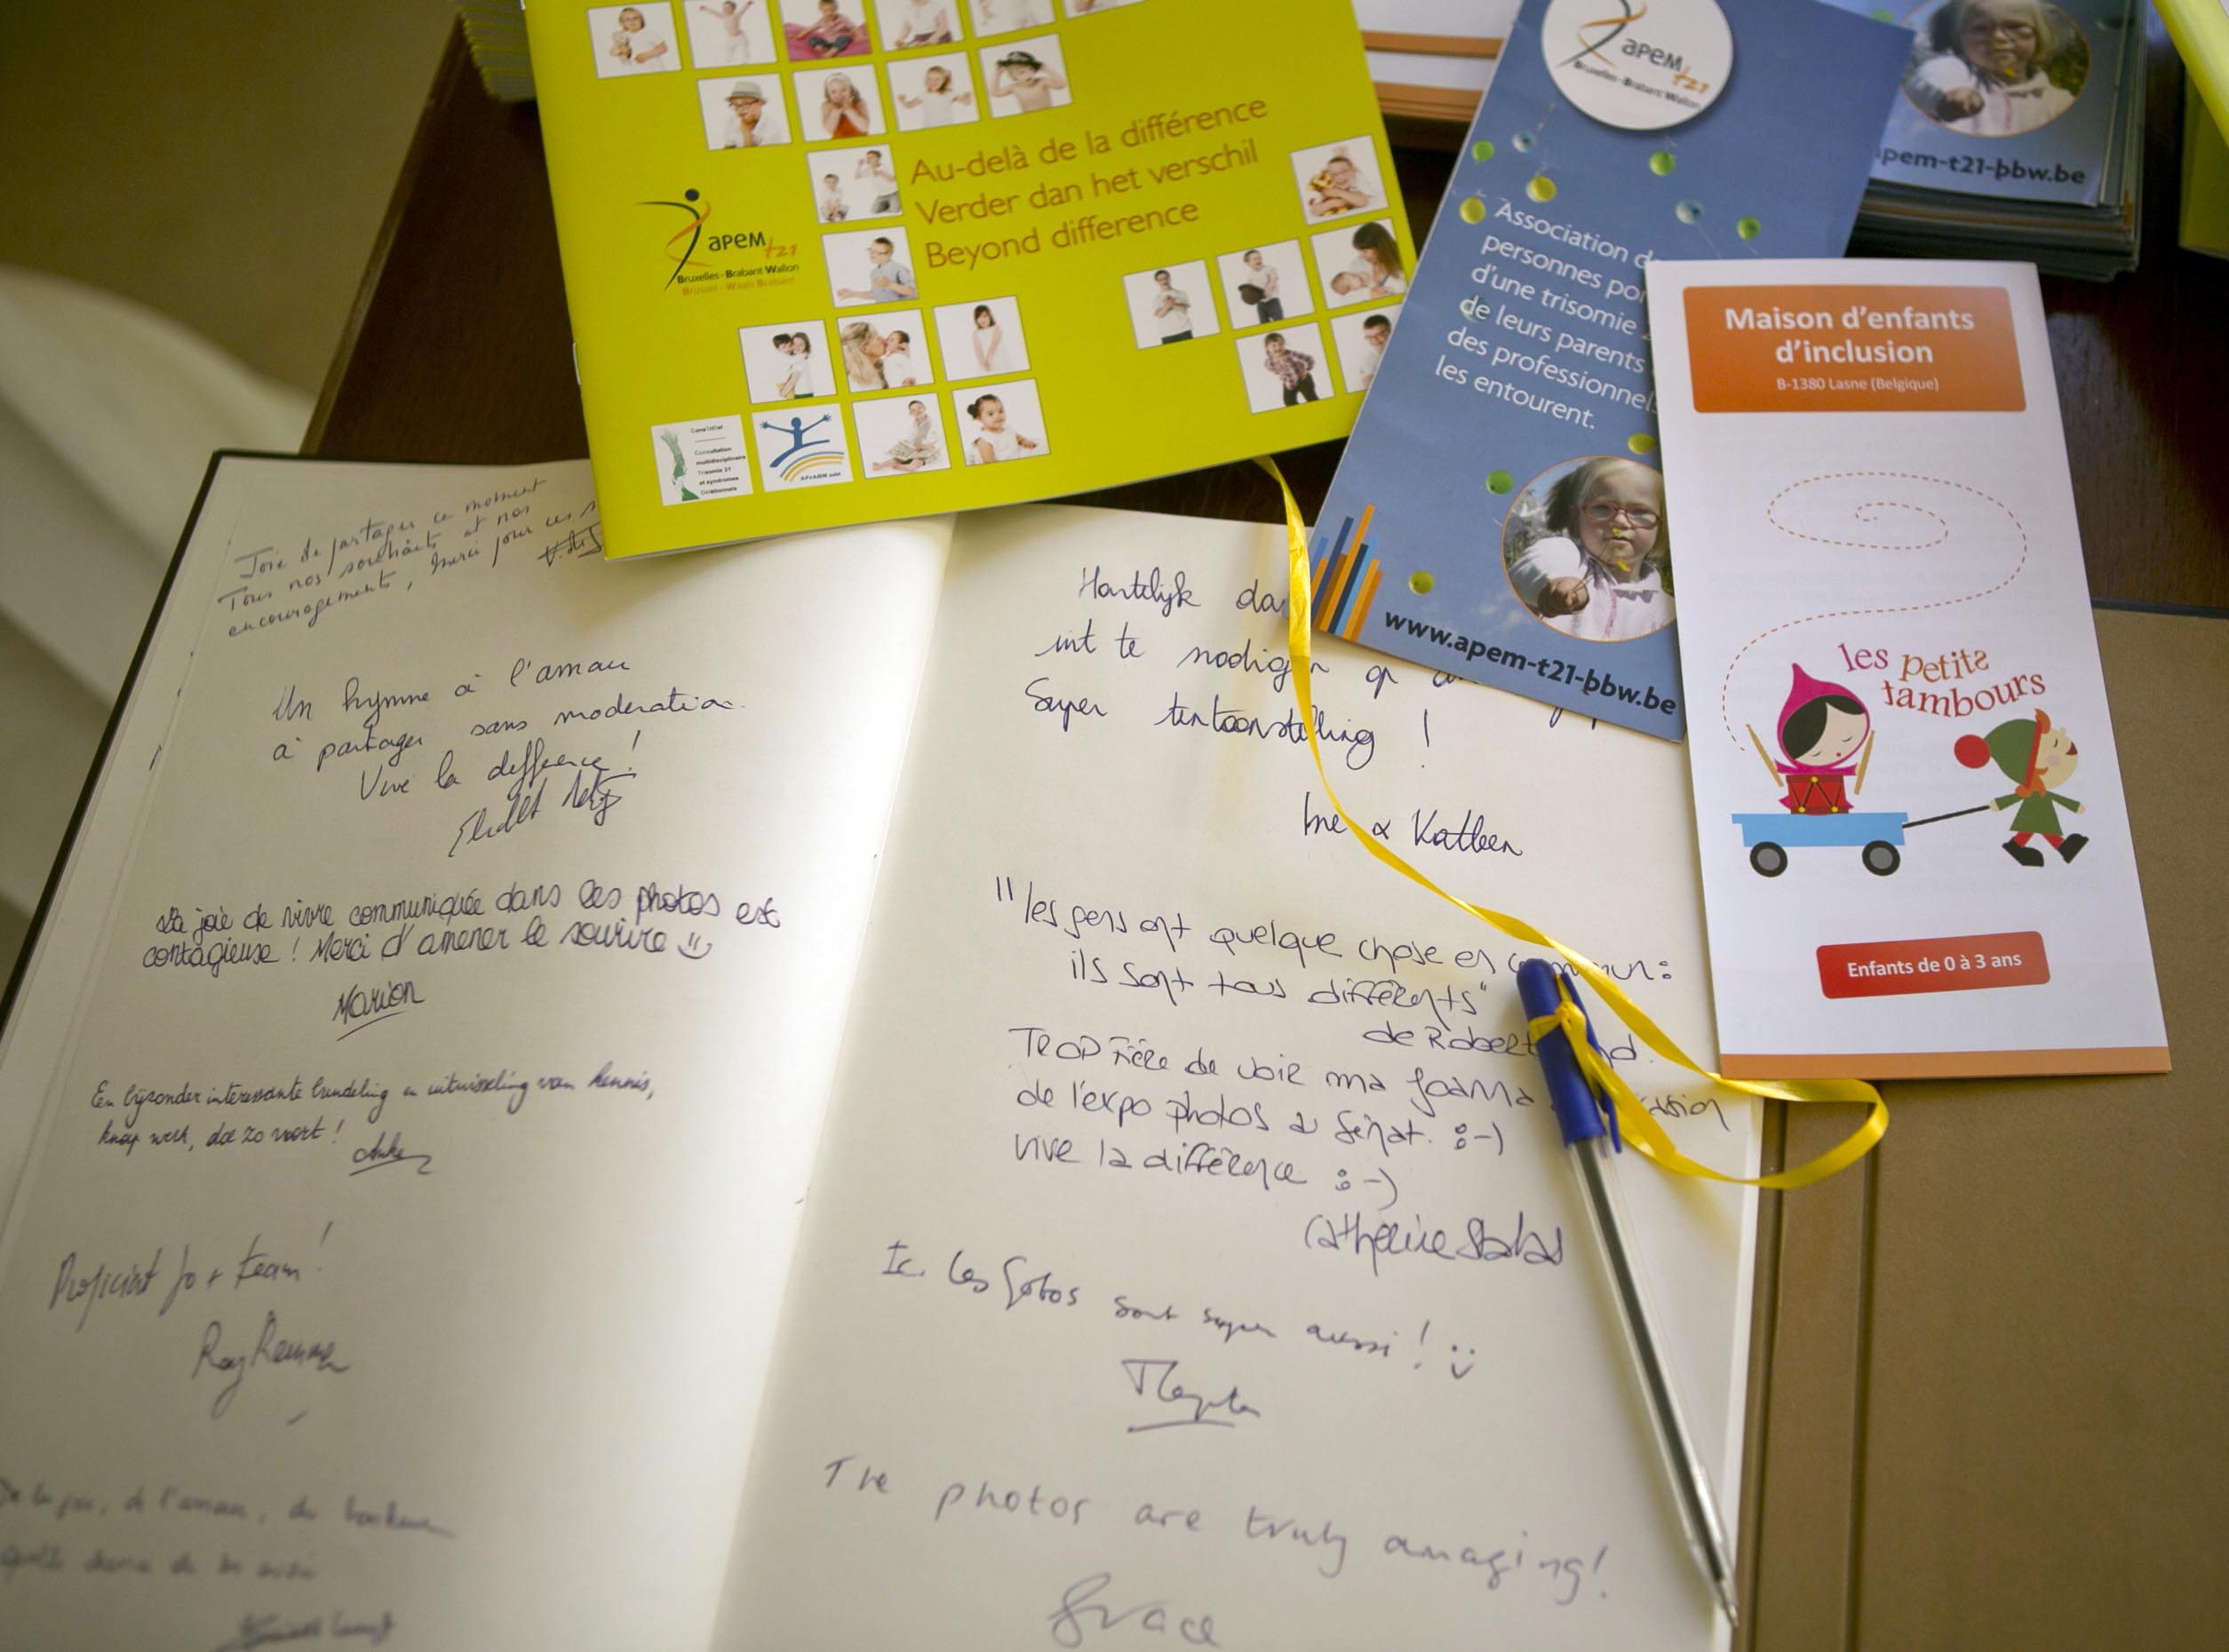 Au-delà de la différence
Verder dan het verschil
Beyond difference
apem t21
Bruxelles - Brabant Wallon
Brussel - Waals Brabant
Consultation
multidisciplinaire
Trisomie 21
et syndromes
AFrAHM asbl
apem t21
Bruxelles-Brabant Wallon
Association
personnes
d'une trisomie
de leurs parents
des professionnels
les entourent.
www.apem-t21-bbw.be
apem-t21-bbw.be
Maison d'enfants
d'inclusion
B-1380 Lasne (Belgique)
les petits
tambours
Enfants de 0 à 3 ans
Joie de partager ce moment
Tous nos souhaits et nos
encouragements, Merci pour ces
Un hymne à l'amour
à partager sans moderation.
Vive la difference!
La joie de vivre communiquée dans ces photos est
contagieuse ! Merci d'amener le sourire
Marion
Een bijzonder interessante bundeling en uitwisseling van kennis,
knap werk, doe zo voort!
Anke
Proficiat Jo + team!
De la joie, de l'amour, du bonheur
Hartelijk
uit te nodigen op
Super tentoonstelling !
Ine & Katleen
"les gens ont quelque chose en commun:
ils sont tous différents"
de Robert
Trop fière de voir ma Joanna
de l'expo photos au Sénat. :-)
vive la différence :-)
Catherine
Ic. Les fotos sont super aussi !
The photos are truly amazing!
Grace